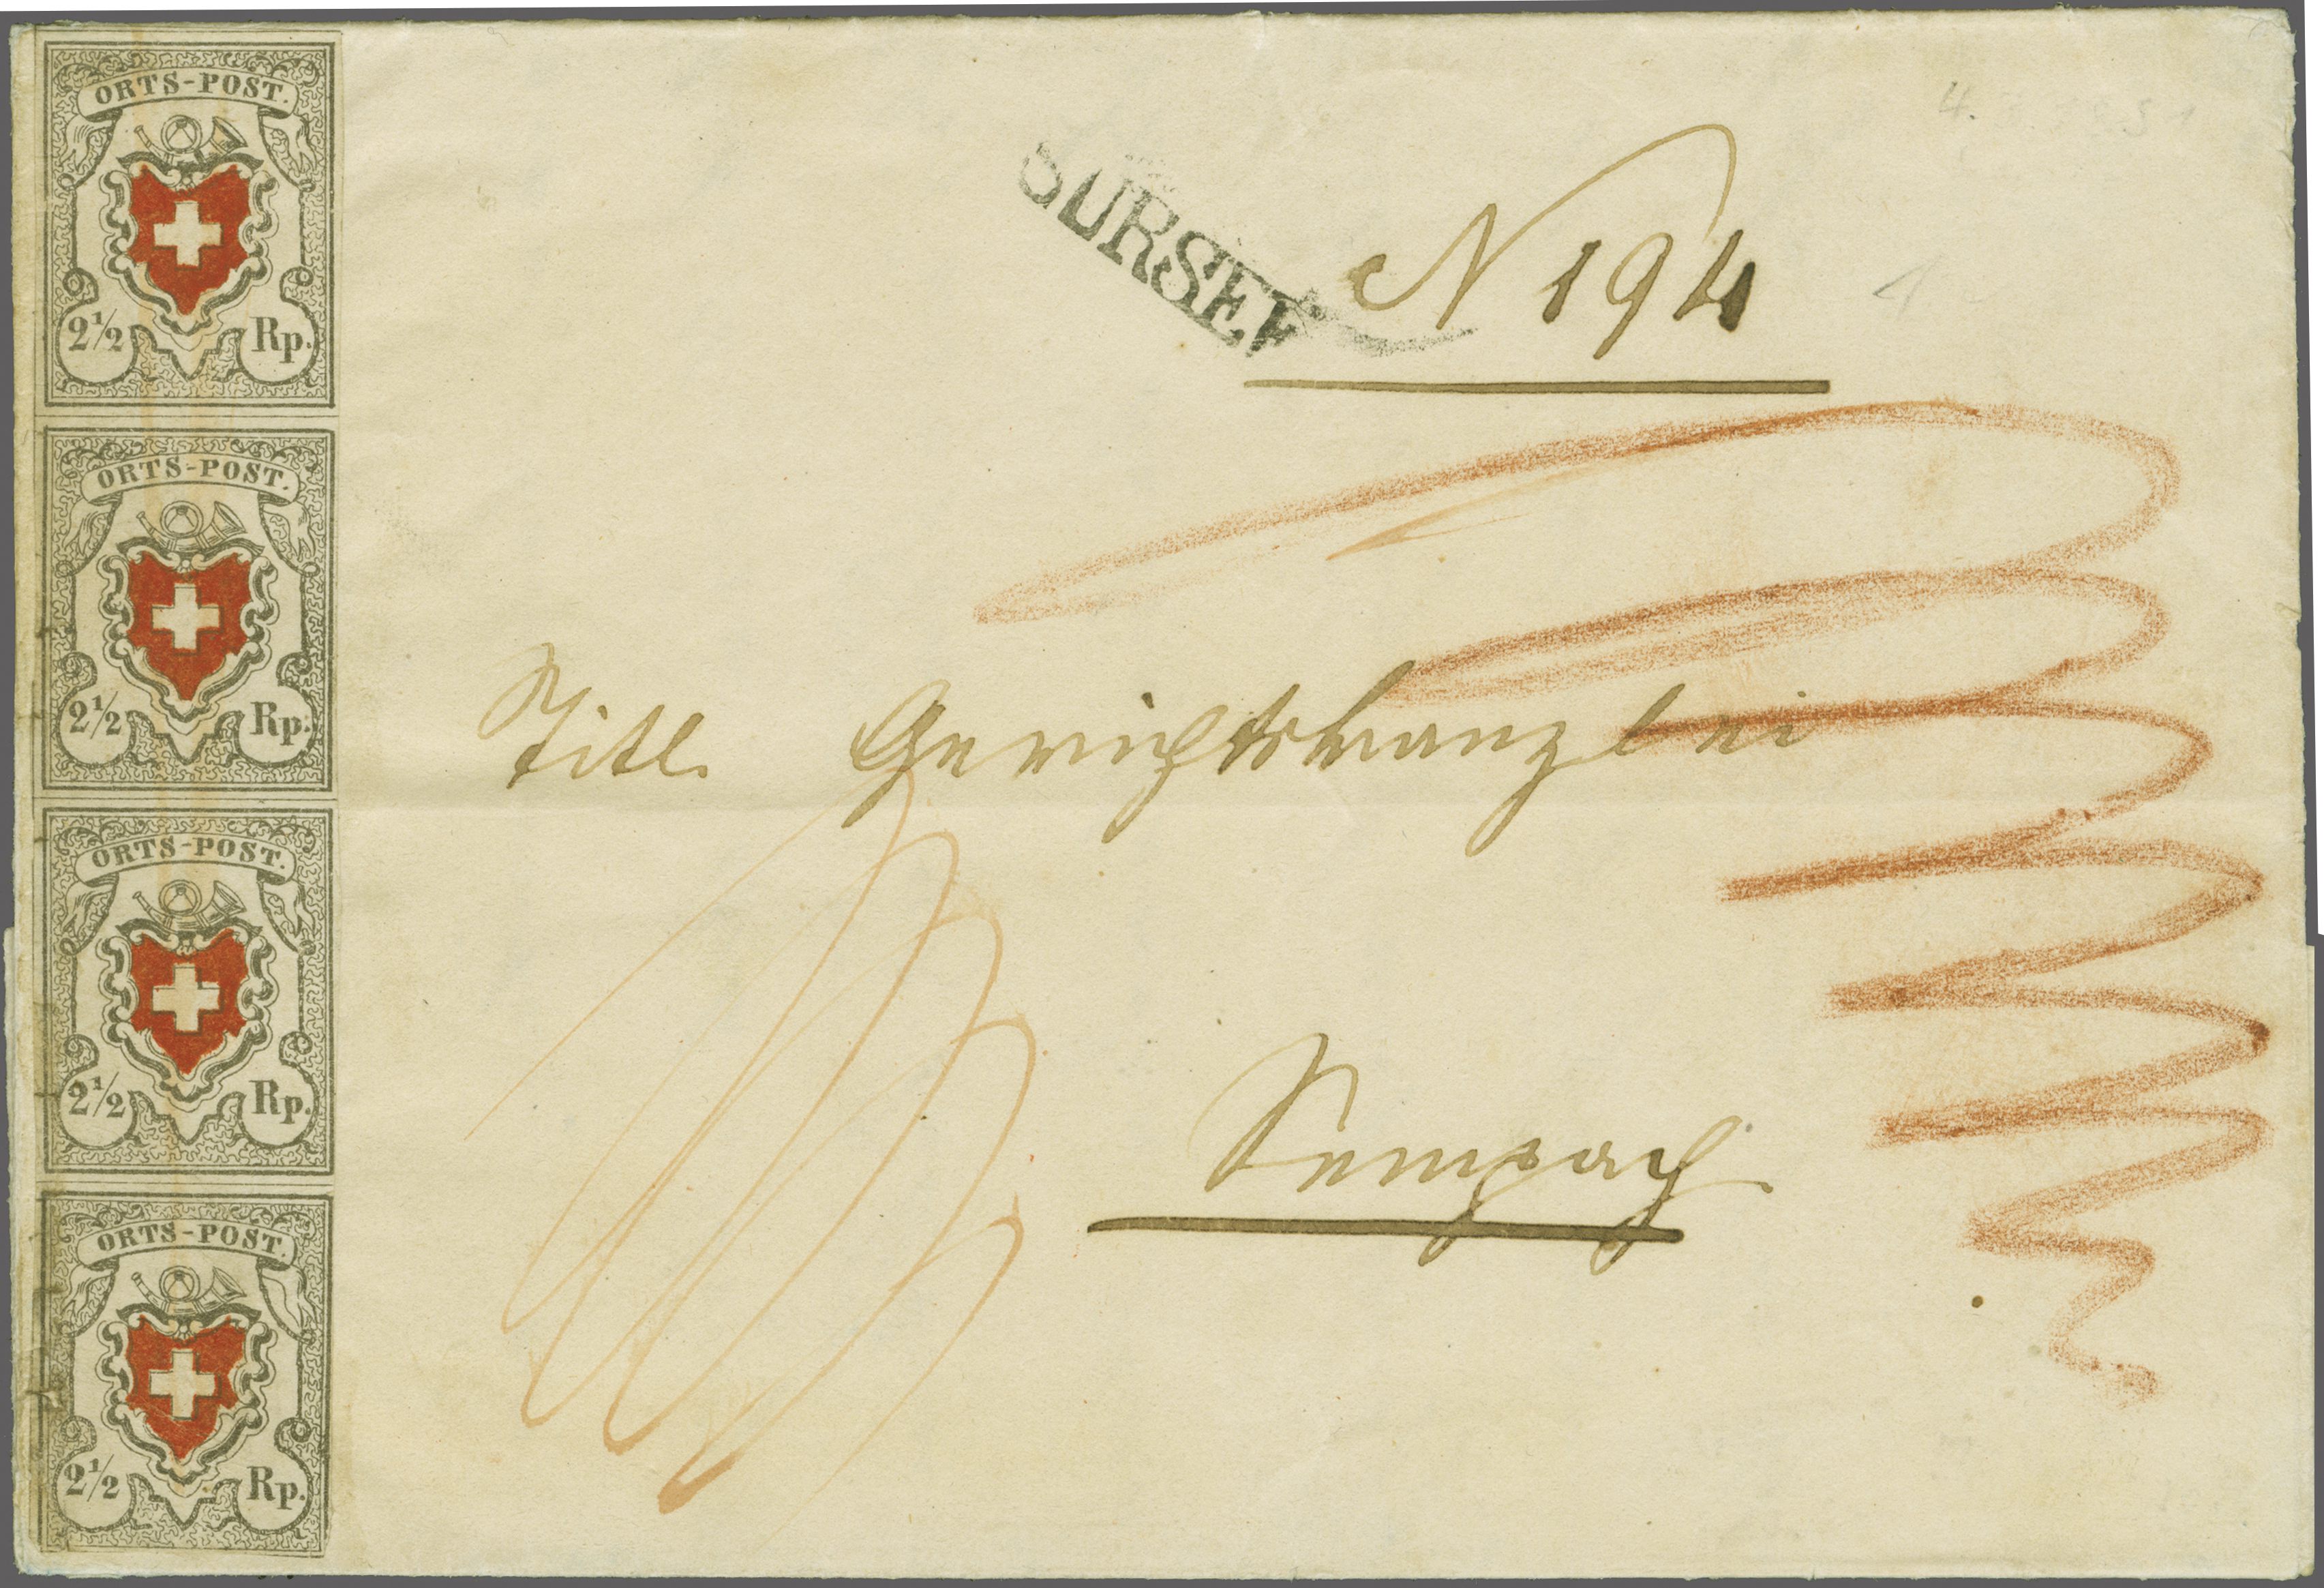 ORTS-POST.
2½ Rp.
ORTS-POST.
2½ Rp.
ORTS-POST.
2½ Rp.
ORTS-POST.
2½ Rp.
SURSEE
N 194
Titl. Gerichtskanzlei
Sempach